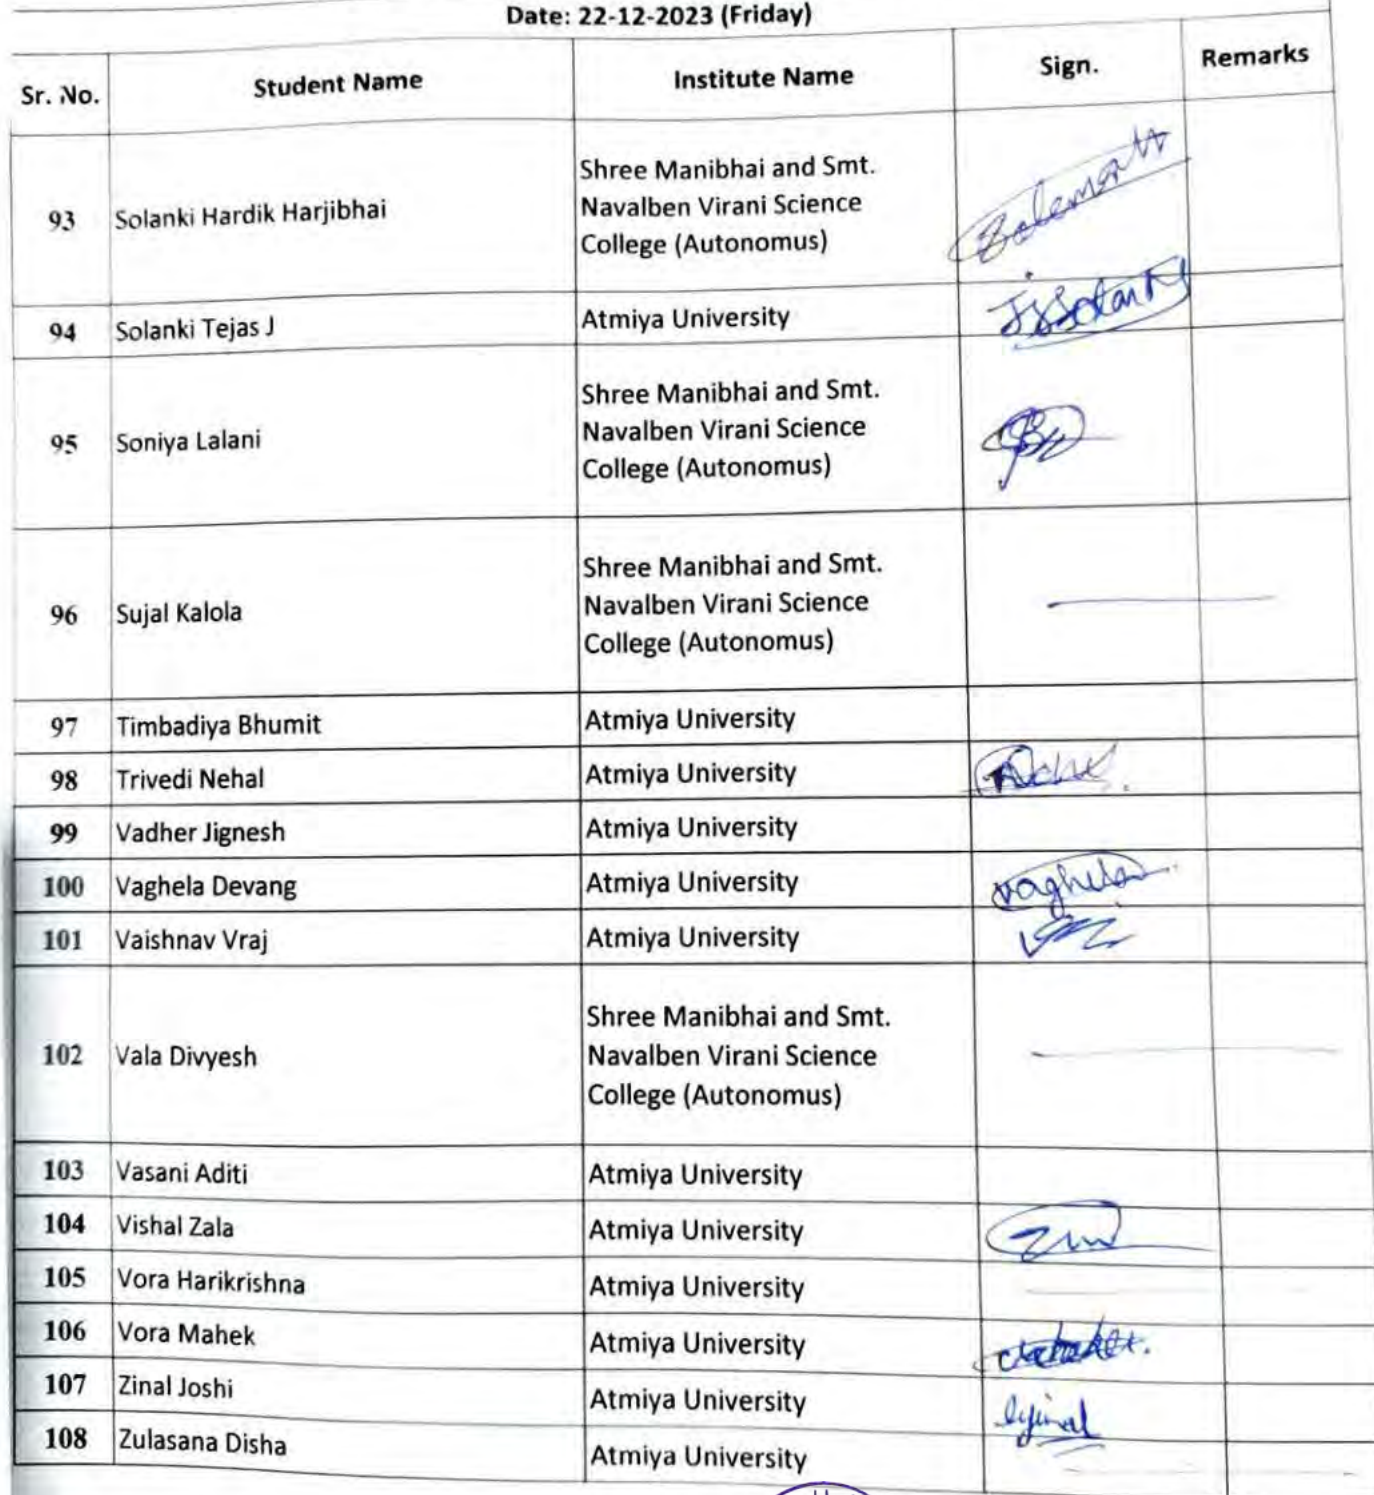 Date: 22-12-2023 (Friday)
Sr. No. Student Name Institute Name Sign. Remarks
93 Solanki Hardik Harjibhai Shree Manibhai and Smt.
Navalben Virani Science
College (Autonomus)
94 Solanki Tejas J Atmiya University
95 Soniya Lalani Shree Manibhai and Smt.
Navalben Virani Science
College (Autonomus)
96 Sujal Kalola Shree Manibhai and Smt.
Navalben Virani Science
College (Autonomus)
97 Timbadiya Bhumit Atmiya University
98 Trivedi Nehal Atmiya University
99 Vadher Jignesh Atmiya University
100 Vaghela Devang Atmiya University vaghela
101 Vaishnav Vraj Atmiya University
102 Vala Divyesh Shree Manibhai and Smt.
Navalben Virani Science
College (Autonomus)
103 Vasani Aditi Atmiya University
104 Vishal Zala Atmiya University
105 Vora Harikrishna Atmiya University
106 Vora Mahek Atmiya University
107 Zinal Joshi Atmiya University
108 Zulasana Disha Atmiya University